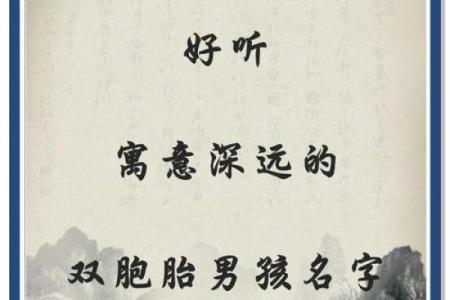 好听
寓意深远的
双胞胎男孩名字